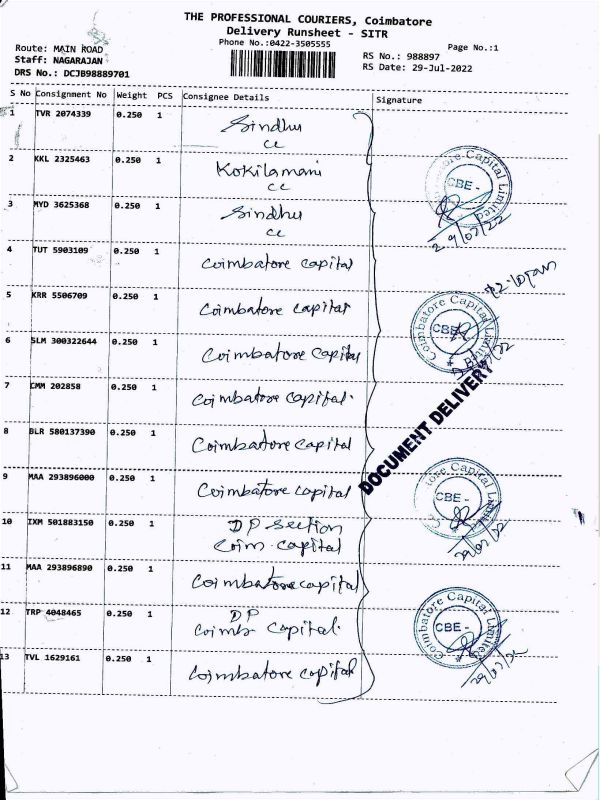 THE PROFESSIONAL COURIERS, Coimbatore
Delivery Runsheet - SITR
Phone No.:0422-3505555
Page No.:1
Route: MAIN ROAD
Staff: NAGARAJAN
DRS No.: DCJB98889701
RS No.: 988897
RS Date: 29-Jul-2022
S No Consignment No Weight PCS Consignee Details Signature
1 TVR 2074339 0.250 1 Sindhu
cc
2 KKL 2325463 0.250 1 Kokilamani
cc
3 MYD 3625368 0.250 1 Sindhu
cc
Coimbatore Capital Limited
CBE -
29/07/22
4 TUT 5903109 0.250 1 Coimbatore capital
5 KRR 5506709 0.250 1 Coimbatore capital
Coimbatore Capital Limited
CBE -
6 SLM 300322644 0.250 1 Coimbatore capital
7 CMM 202858 0.250 1 Coimbatore capital.
DOCUMENT DELIVERY
8 BLR 580137390 0.250 1 Coimbatore capital
9 MAA 293896000 0.250 1 Coimbatore capital
Coimbatore Capital Limited
CBE -
29/07/22
10 IXM 501883150 0.250 1 DP section
Coim. capital
11 MAA 293896890 0.250 1 Coimbatore capital
12 TRP 4048465 0.250 1 DP
Coimb Capital.
Coimbatore Capital Limited
CBE -
29/07/22
13 TVL 1629161 0.250 1 Coimbatore capital